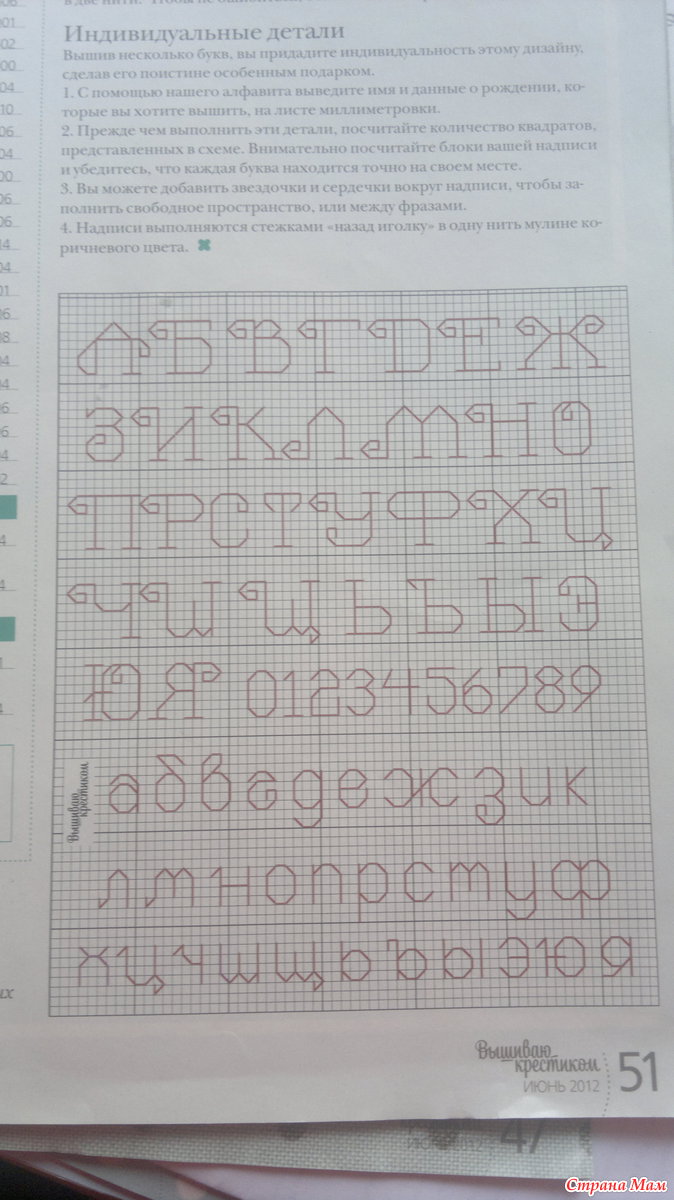 в две нити. Чтобы не
Индивидуальные детали
Вышив несколько букв, вы придадите индивидуальность этому дизайну,
сделав его поистине особенным подарком.
1. С помощью нашего алфавита выведите имя и данные о рождении, ко-
торые вы хотите вышить, на листе миллиметровки.
2. Прежде чем выполнить эти детали, посчитайте количество квадратов,
представленных в схеме. Внимательно посчитайте блоки вашей надписи
и убедитесь, что каждая буква находится точно на своем месте.
3. Вы можете добавить звездочки и сердечки вокруг надписи, чтобы за-
полнить свободное пространство, или между фразами.
4. Надписи выполняются стежками «назад иголку» в одну нить мулине ко-
ричневого цвета.
А Б В Г D Е Ж
З И К Л М Н О
П Р С Т У Ф Х Ц
Ч Ш Щ Ь Ъ Ы Э
Ю Я 0 1 2 3 4 5 6 7 8 9
Вышиваю
крестиком
а б в г д е ж з и к
л м н о п р с т у ф
х ц ч ш щ ь ъ ы э ю я
Вышиваю
крестиком
ИЮНЬ 2012 51
47
Страна Мам